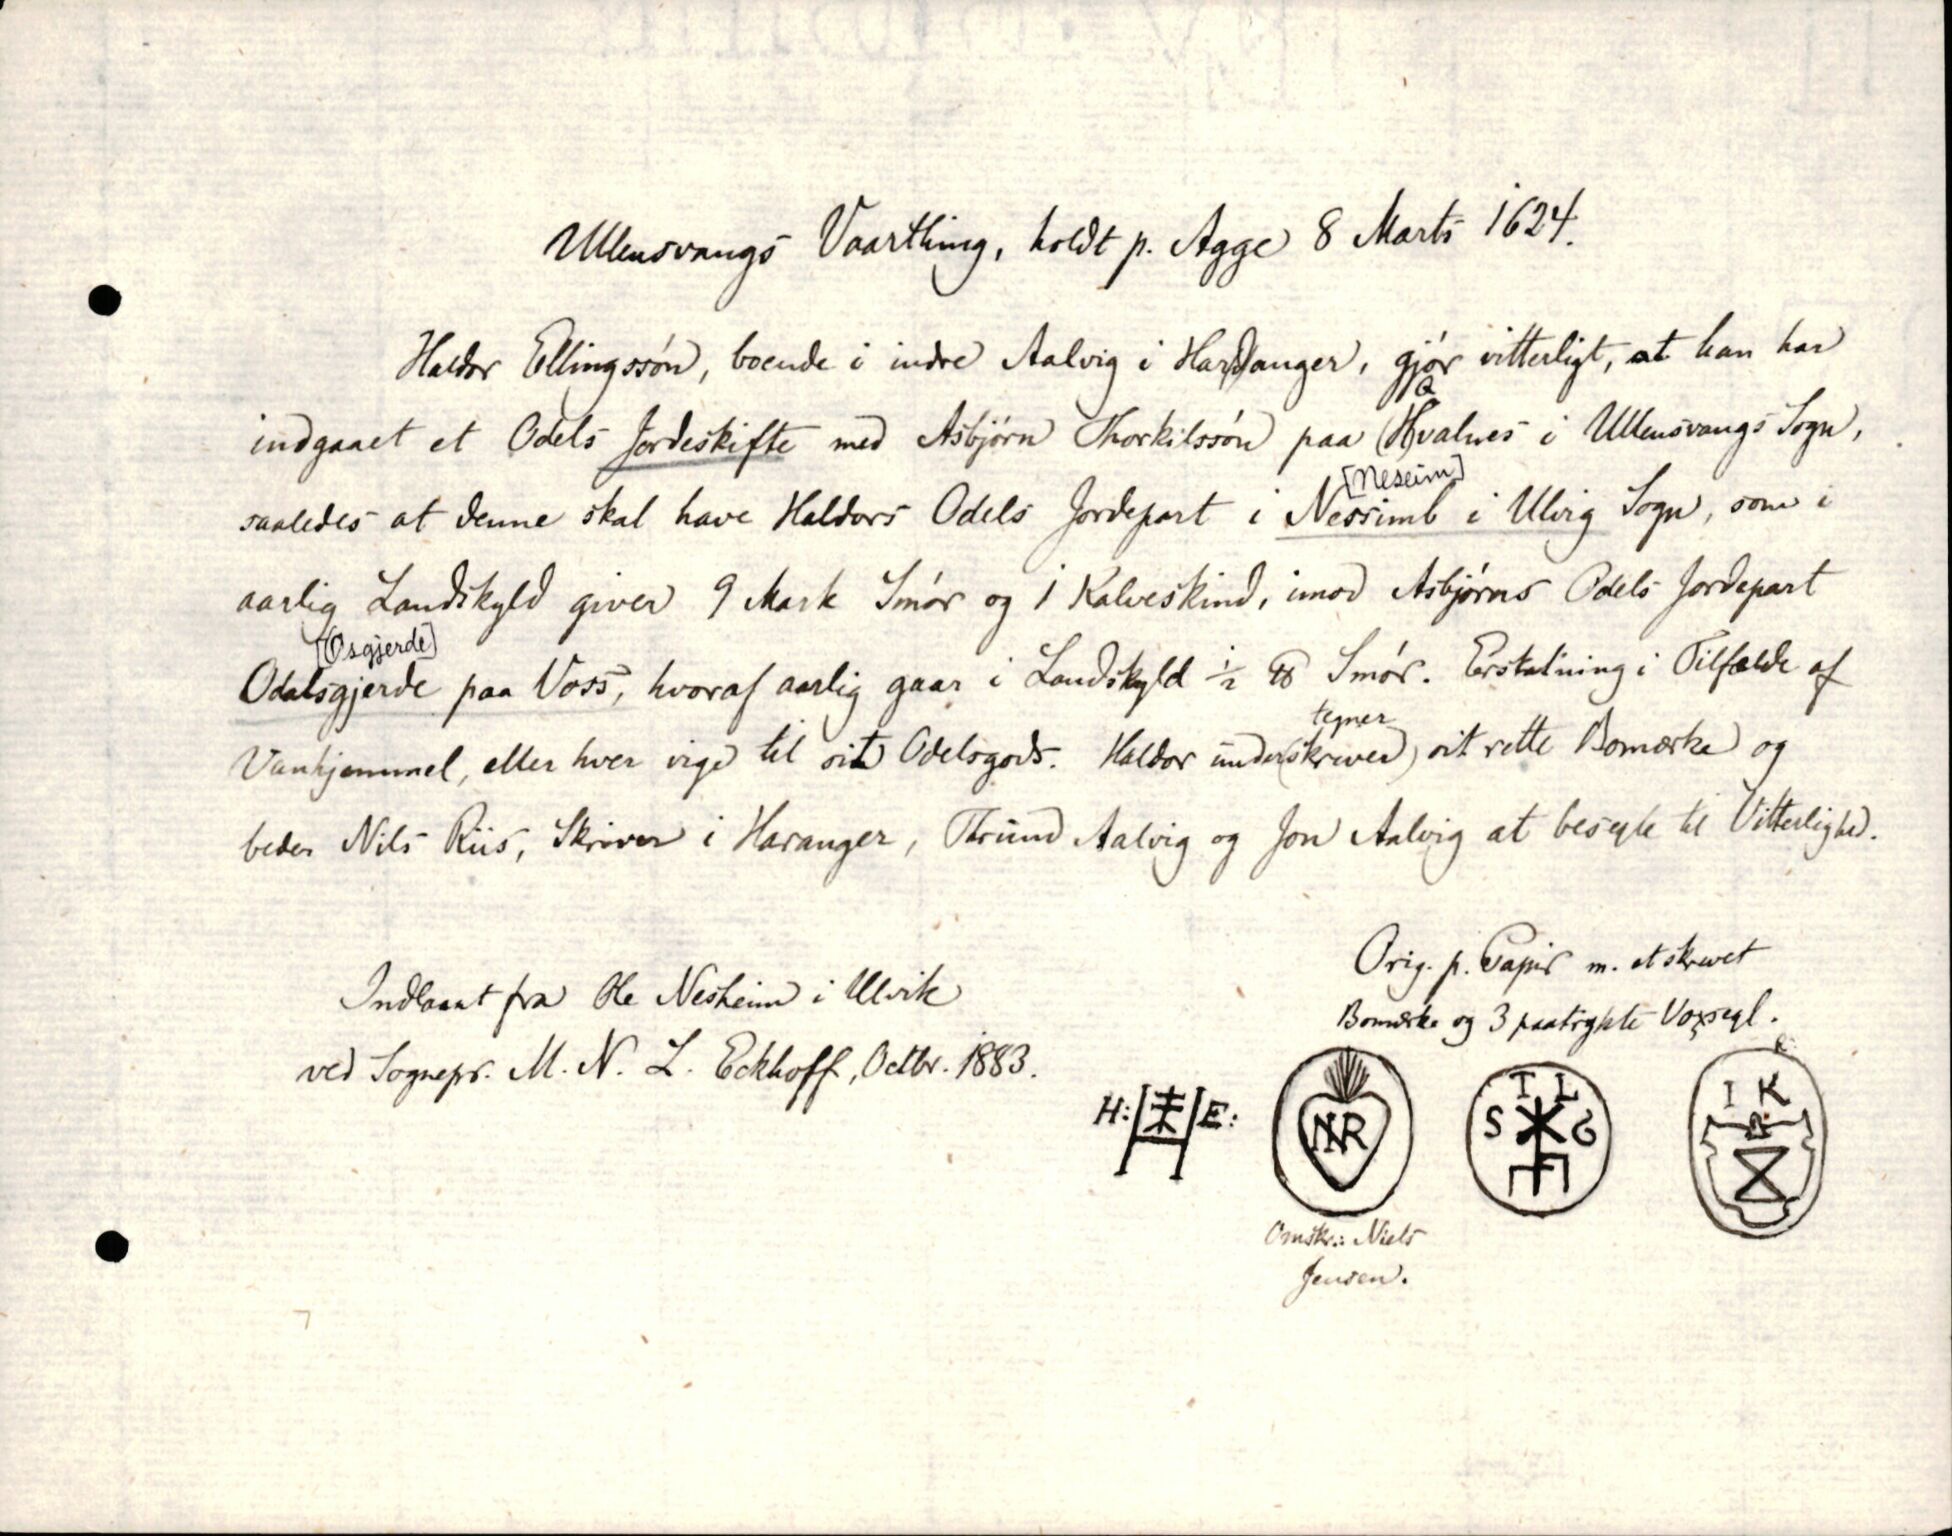 Ullensvangs Vaarthing, holdt p. Agge 8 Marts 1624.
Haldor Ellingssón, boende i indre Aalvig i Har(d)anger, gjór vitterligt, at han har
indgaaet et Odels Jordeskifte med Asbjórn Thorkilssón paa (H)valnes i Ullensvangs Sogn,
[Neseim]
saaledes at denne skal have Haldors Odels Jordepart i Nessimb i Ulvig Sogn, som i
aarlig Landskyld giver 9 Mark Smór og 1 Kalveskind, imod Asbjórns Odels Jordepart
[Osgjerde]
Odalsgjerde paa Voss, hvoraf aarlig gaar i Landskyld ½ ℔ Smór. Erstatning i Tilfælde af
tegner
Vanhjemmel, eller hver vige til sit Odelsgods. Haldor under(skriver) sit rette Bomærke og
beder Nils Riis, Skriver i Haranger, Thrund Aalvig og Jon Aalvig at besegle til Vitterlighed.
Orig. p. Papir m. et skrevet
Bomærke og 3 paatrykte Voxsegl.
Indlaant fra Ole Nesheim i Ulvik
ved Sognepr. M. N. L. Eckhoff, Octbr. 1883.
H: E:
NR
T L
S S
I K
Omskr.: Niels
Jensen.